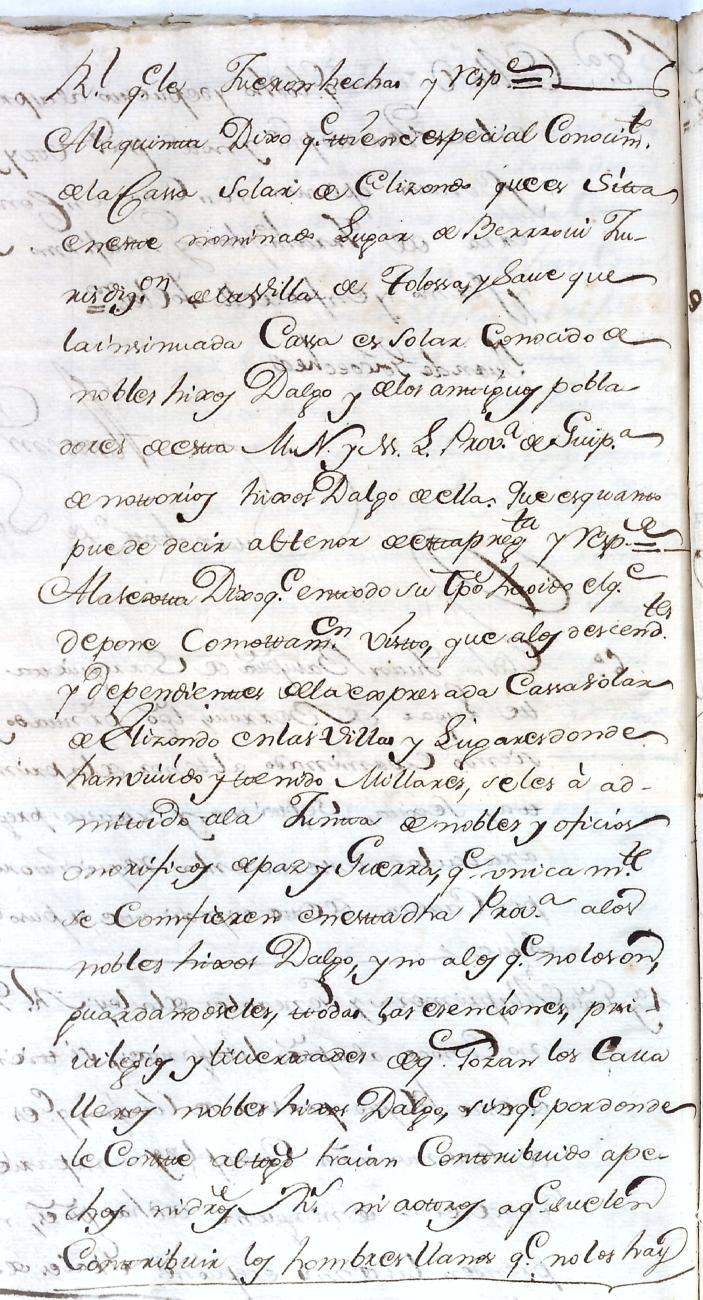 R.l q.e le fueron hechas y resp.e
A la quinta Dixo q.e tiene especial Conocim.to
de la Cassa Solar de Elizondo que es Sitta
en este nominado Lugar de Berrovi Ju-
risdiz.on de la Villa de Tolossa, y Save que
la insinuada Cassa es Solar Conocido de
nobles hixos Dalgo y de los antiguos pobla
dores de esta M. N. y M. L. Prov.a de Guip.a
de nottorios hixos Dalgo de ella. Que es quanto
puede decir al tenor de esta preg.ta y resp.de
A la sexta Dixo q.e en todo su tpo ha oido el q.e
depone Como tam.en visto, que a los descend.tes
y dependientes de la expresada Cassa Solar
de Elizondo en las Villas y Lugares donde
han vivido y tenido Millares, se les à ad-
mitido a la Junta de nobles y oficios
onorificos de paz y Guerra, q.e unicam.te
se Confieren en esta dha Prov.a a los
nobles hixos Dalgo, y no a los q.e no lo son,
guardandoseles, todas las esenciones, pri-
vilegios y livertades de q.e Gozan los Cava
lleros nobles hixos Dalgo, sin q.e por donde
le Conste al togo haian Contribuido a pe-
chos ni drôs R.s ni a otros a q.e suelen
Contribuir los hombres llanos q.e no los hay